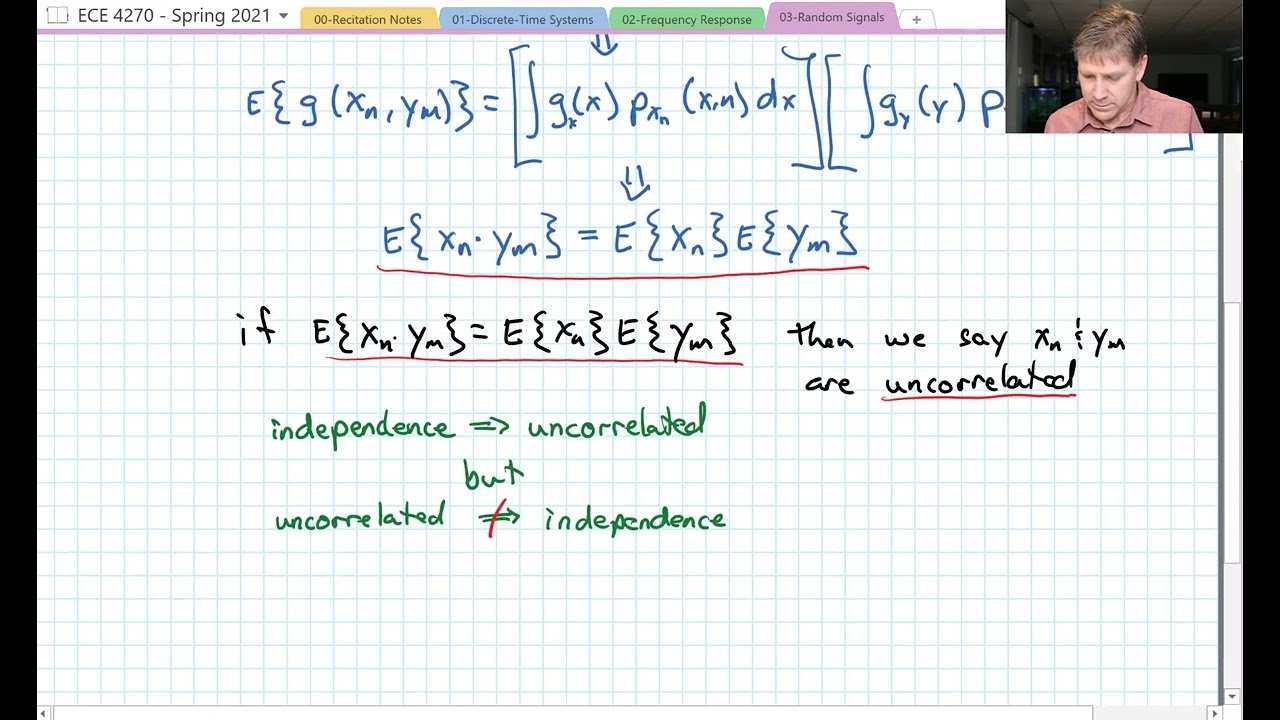 ECE 4270 - Spring 2021
00-Recitation Notes
01-Discrete-Time Systems
02-Frequency Response
03-Random Signals
+
⇓
E{g(xₙ, yₘ)} = [∫ gₓ(x) pₓₙ(x,n) dx] [∫ gᵧ(y) p
⇓
E{xₙ · yₘ} = E{xₙ}E{yₘ}
if E{xₙ · yₘ} = E{xₙ}E{yₘ} then we say xₙ & yₘ
are uncorrelated
independence ⇒ uncorrelated
but
uncorrelated ⇏ independence